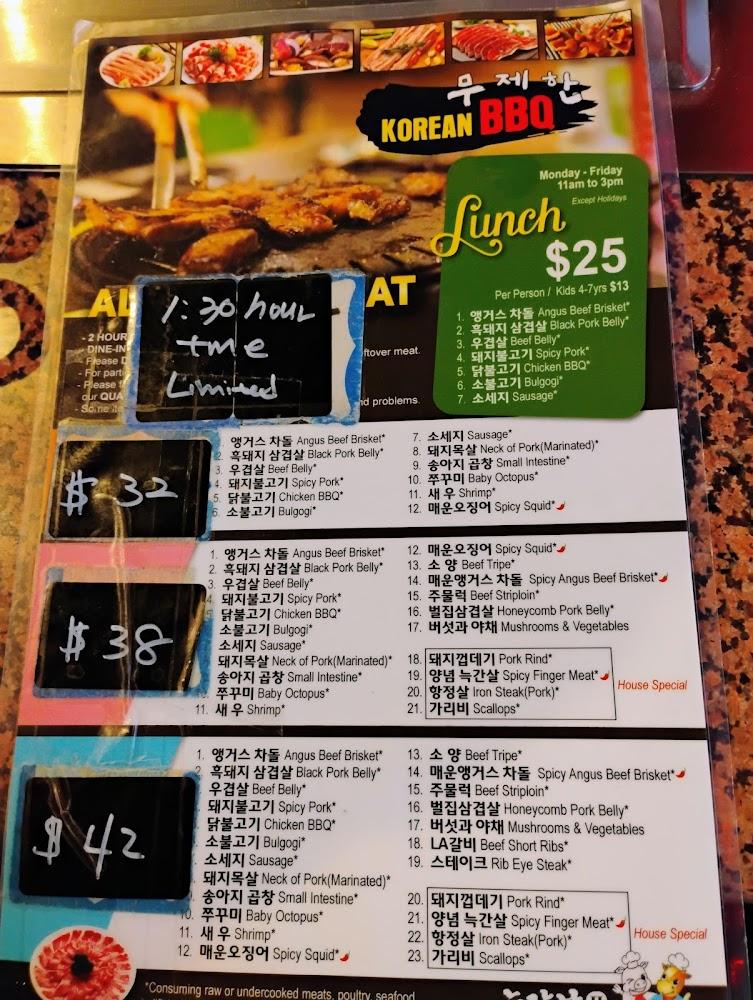 무제한
KOREAN BBQ
Monday - Friday
11am to 3pm
Except Holidays
Lunch
$25
Per Person / Kids 4-7yrs $13
1. 앵거스 차돌 Angus Beef Brisket*
2. 흑돼지 삼겹살 Black Pork Belly*
3. 우겹살 Beef Belly*
4. 돼지불고기 Spicy Pork*
5. 닭불고기 Chicken BBQ*
6. 소불고기 Bulgogi*
7. 소세지 Sausage*
AL
AT
1:30 hour
tme
Limited
- 2 HOUR
DINE-IN
- Please
ftover meat.
- For part
- Please
our QUA
d problems.
- Some ite
$ 32
앵거스 차돌 Angus Beef Brisket*
2. 흑돼지 삼겹살 Black Pork Belly*
3. 우겹살 Beef Belly*
4. 돼지불고기 Spicy Pork*
5. 닭불고기 Chicken BBQ*
6. 소불고기 Bulgogi*
7. 소세지 Sausage*
8. 돼지목살 Neck of Pork(Marinated)*
9. 송아지 곱창 Small Intestine*
10. 쭈꾸미 Baby Octopus*
11. 새 우 Shrimp*
12. 매운오징어 Spicy Squid*
$ 38
1. 앵거스 차돌 Angus Beef Brisket*
2. 흑돼지 삼겹살 Black Pork Belly*
3. 우겹살 Beef Belly*
4. 돼지불고기 Spicy Pork*
닭불고기 Chicken BBQ*
소불고기 Bulgogi*
소세지 Sausage*
돼지목살 Neck of Pork(Marinated)*
송아지 곱창 Small Intestine*
쭈꾸미 Baby Octopus*
11. 새 우 Shrimp*
12. 매운오징어 Spicy Squid*
13. 소 양 Beef Tripe*
14. 매운앵거스 차돌 Spicy Angus Beef Brisket*
15. 주물럭 Beef Striploin*
16. 벌집삼겹살 Honeycomb Pork Belly*
17. 버섯과 야채 Mushrooms & Vegetables
18. 돼지껍데기 Pork Rind*
19. 양념 늑간살 Spicy Finger Meat*
20. 항정살 Iron Steak(Pork)*
21. 가리비 Scallops*
House Special
$ 42
1. 앵거스 차돌 Angus Beef Brisket*
2. 흑돼지 삼겹살 Black Pork Belly*
우겹살 Beef Belly*
돼지불고기 Spicy Pork*
닭불고기 Chicken BBQ*
소불고기 Bulgogi*
소세지 Sausage*
돼지목살 Neck of Pork(Marinated)*
송아지 곱창 Small Intestine*
10. 쭈꾸미 Baby Octopus*
11. 새 우 Shrimp*
12. 매운오징어 Spicy Squid*
13. 소 양 Beef Tripe*
14. 매운앵거스 차돌 Spicy Angus Beef Brisket*
15. 주물럭 Beef Striploin*
16. 벌집삼겹살 Honeycomb Pork Belly*
17. 버섯과 야채 Mushrooms & Vegetables
18. LA갈비 Beef Short Ribs*
19. 스테이크 Rib Eye Steak*
20. 돼지껍데기 Pork Rind*
21. 양념 늑간살 Spicy Finger Meat*
22. 항정살 Iron Steak(Pork)*
23. 가리비 Scallops*
House Special
*Consuming raw or undercooked meats, poultry, seafood